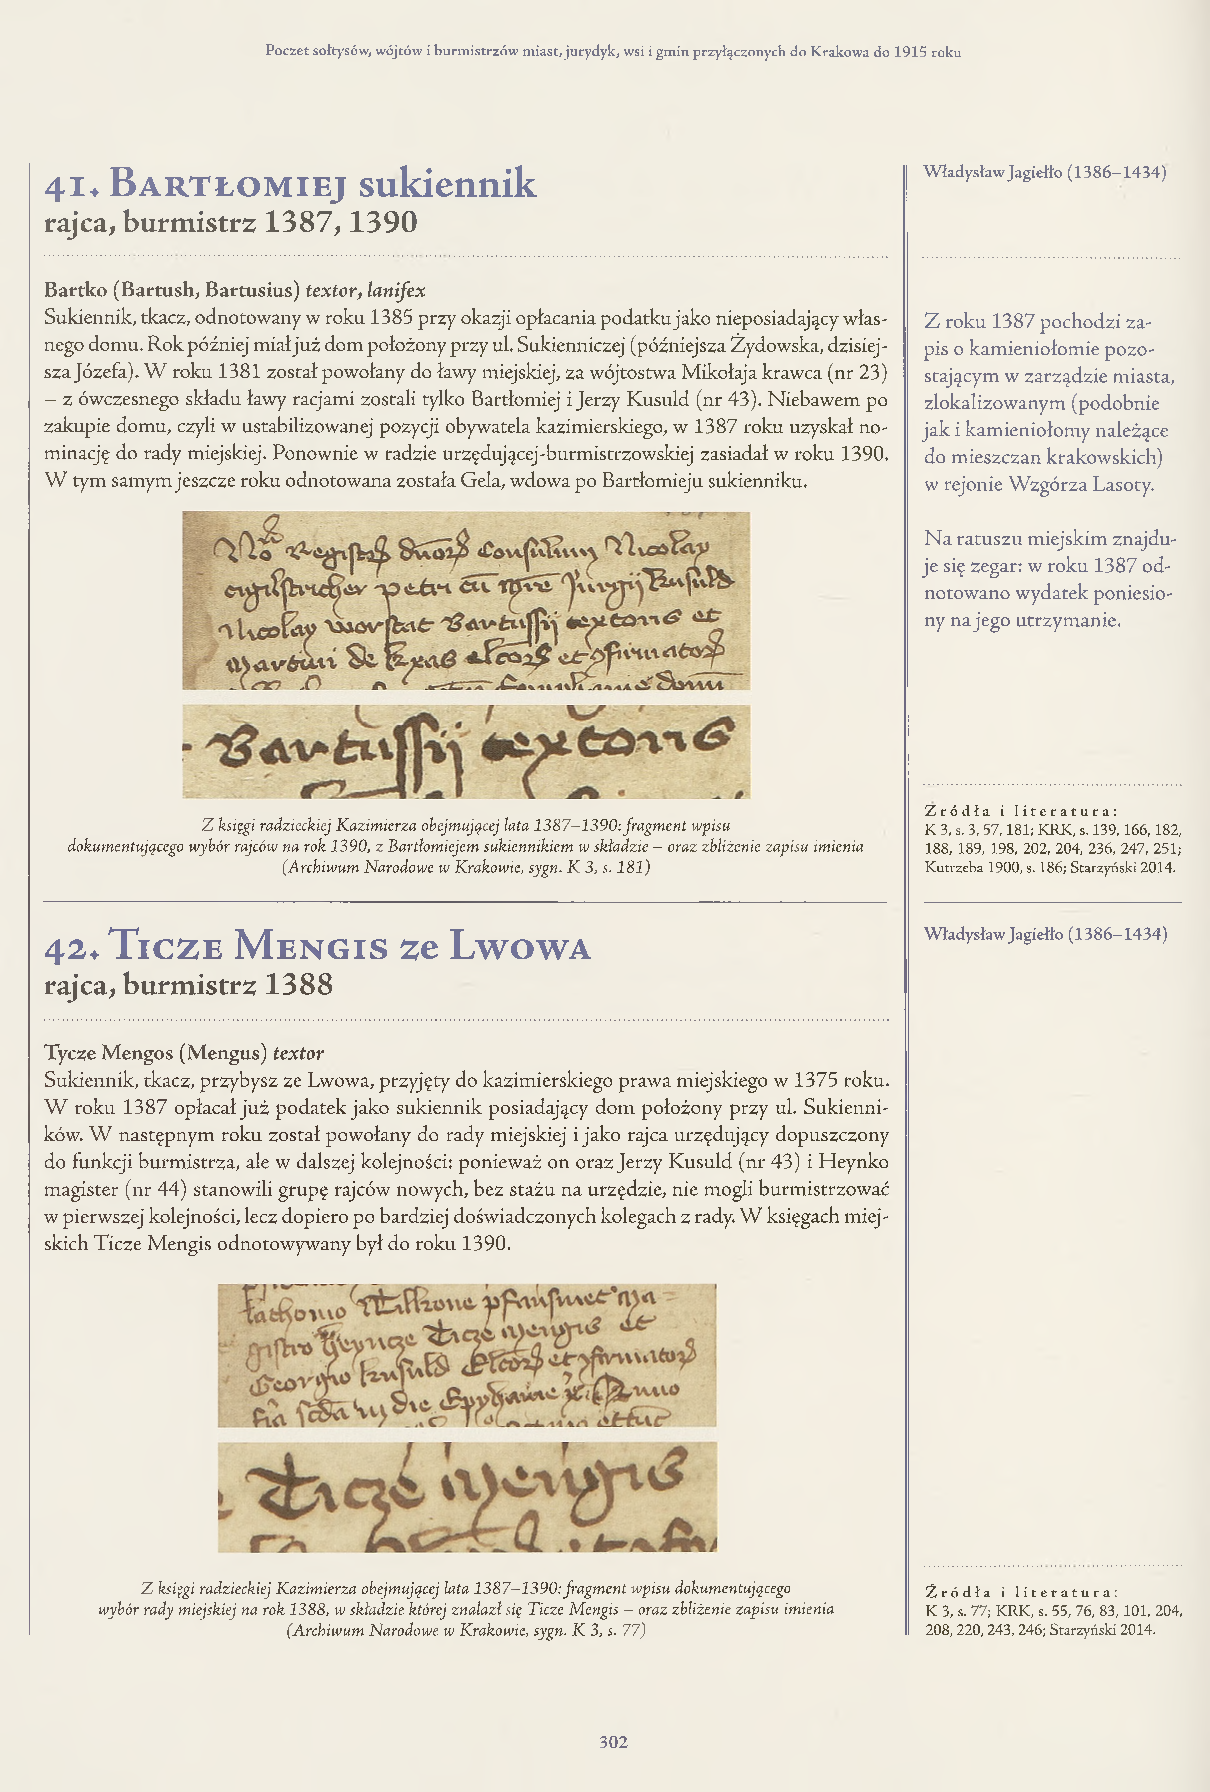 Poczet sołtysów, wójtów i burmistrzów miast, jurydyk, wsi i gmin przyłączonych do Krakowa do 1915 roku
41. Bartłomiej sukiennik
rajca, burmistrz 1387, 1390
Bartko (Bartush, Bartusius) textor, lanifex
Sukiennik, tkacz, odnotowany w roku 1385 przy okazji opłacania podatku jako nieposiadający włas-
nego domu. Rok później miał już dom położony przy ul. Sukienniczej (późniejsza Żydowska, dzisiej-
sza Józefa). W roku 1381 został powołany do ławy miejskiej, za wójtostwa Mikołaja krawca (nr 23)
– z ówczesnego składu ławy racjami zostali tylko Bartłomiej i Jerzy Kusuld (nr 43). Niebawem po
zakupie domu, czyli w ustabilizowanej pozycji obywatela kazimierskiego, w 1387 roku uzyskał no-
minację do rady miejskiej. Ponownie w radzie urzędującej-burmistrzowskiej zasiadał w roku 1390.
W tym samym jeszcze roku odnotowana została Gela, wdowa po Bartłomieju sukienniku.
Nicolay
petri
Nicolay Worstat Bartussii textoris et
Bartussii textoris
Z księgi radzieckiej Kazimierza obejmującej lata 1387–1390: fragment wpisu
dokumentującego wybór rajców na rok 1390, z Bartłomiejem sukiennikiem w składzie – oraz zbliżenie zapisu imienia
(Archiwum Narodowe w Krakowie, sygn. K 3, s. 181)
Władysław Jagiełło (1386–1434)
Z roku 1387 pochodzi za-
pis o kamieniołomie pozo-
stającym w zarządzie miasta,
zlokalizowanym (podobnie
jak i kamieniołomy należące
do mieszczan krakowskich)
w rejonie Wzgórza Lasoty.
Na ratuszu miejskim znajdu-
je się zegar: w roku 1387 od-
notowano wydatek poniesio-
ny na jego utrzymanie.
Źródła i literatura:
K 3, s. 3, 57, 181; KRK, s. 139, 166, 182,
188, 189, 198, 202, 204, 236, 247, 251;
Kutrzeba 1900, s. 186; Starzyński 2014.
42. Ticze Mengis ze Lwowa
rajca, burmistrz 1388
Tycze Mengos (Mengus) textor
Sukiennik, tkacz, przybysz ze Lwowa, przyjęty do kazimierskiego prawa miejskiego w 1375 roku.
W roku 1387 opłacał już podatek jako sukiennik posiadający dom położony przy ul. Sukienni-
ków. W następnym roku został powołany do rady miejskiej i jako rajca urzędujący dopuszczony
do funkcji burmistrza, ale w dalszej kolejności: ponieważ on oraz Jerzy Kusuld (nr 43) i Heynko
magister (nr 44) stanowili grupę rajców nowych, bez stażu na urzędzie, nie mogli burmistrzować
w pierwszej kolejności, lecz dopiero po bardziej doświadczonych kolegach z rady. W księgach miej-
skich Ticze Mengis odnotowywany był do roku 1390.
gistro Heyncze Ticze Mengis et
Georgio Kusuld
Ticze Mengis
Z księgi radzieckiej Kazimierza obejmującej lata 1387–1390: fragment wpisu dokumentującego
wybór rady miejskiej na rok 1388, w składzie której znalazł się Ticze Mengis – oraz zbliżenie zapisu imienia
(Archiwum Narodowe w Krakowie, sygn. K 3, s. 77)
Władysław Jagiełło (1386–1434)
Źródła i literatura:
K 3, s. 77; KRK, s. 55, 76, 83, 101, 204,
208, 220, 243, 246; Starzyński 2014.
302